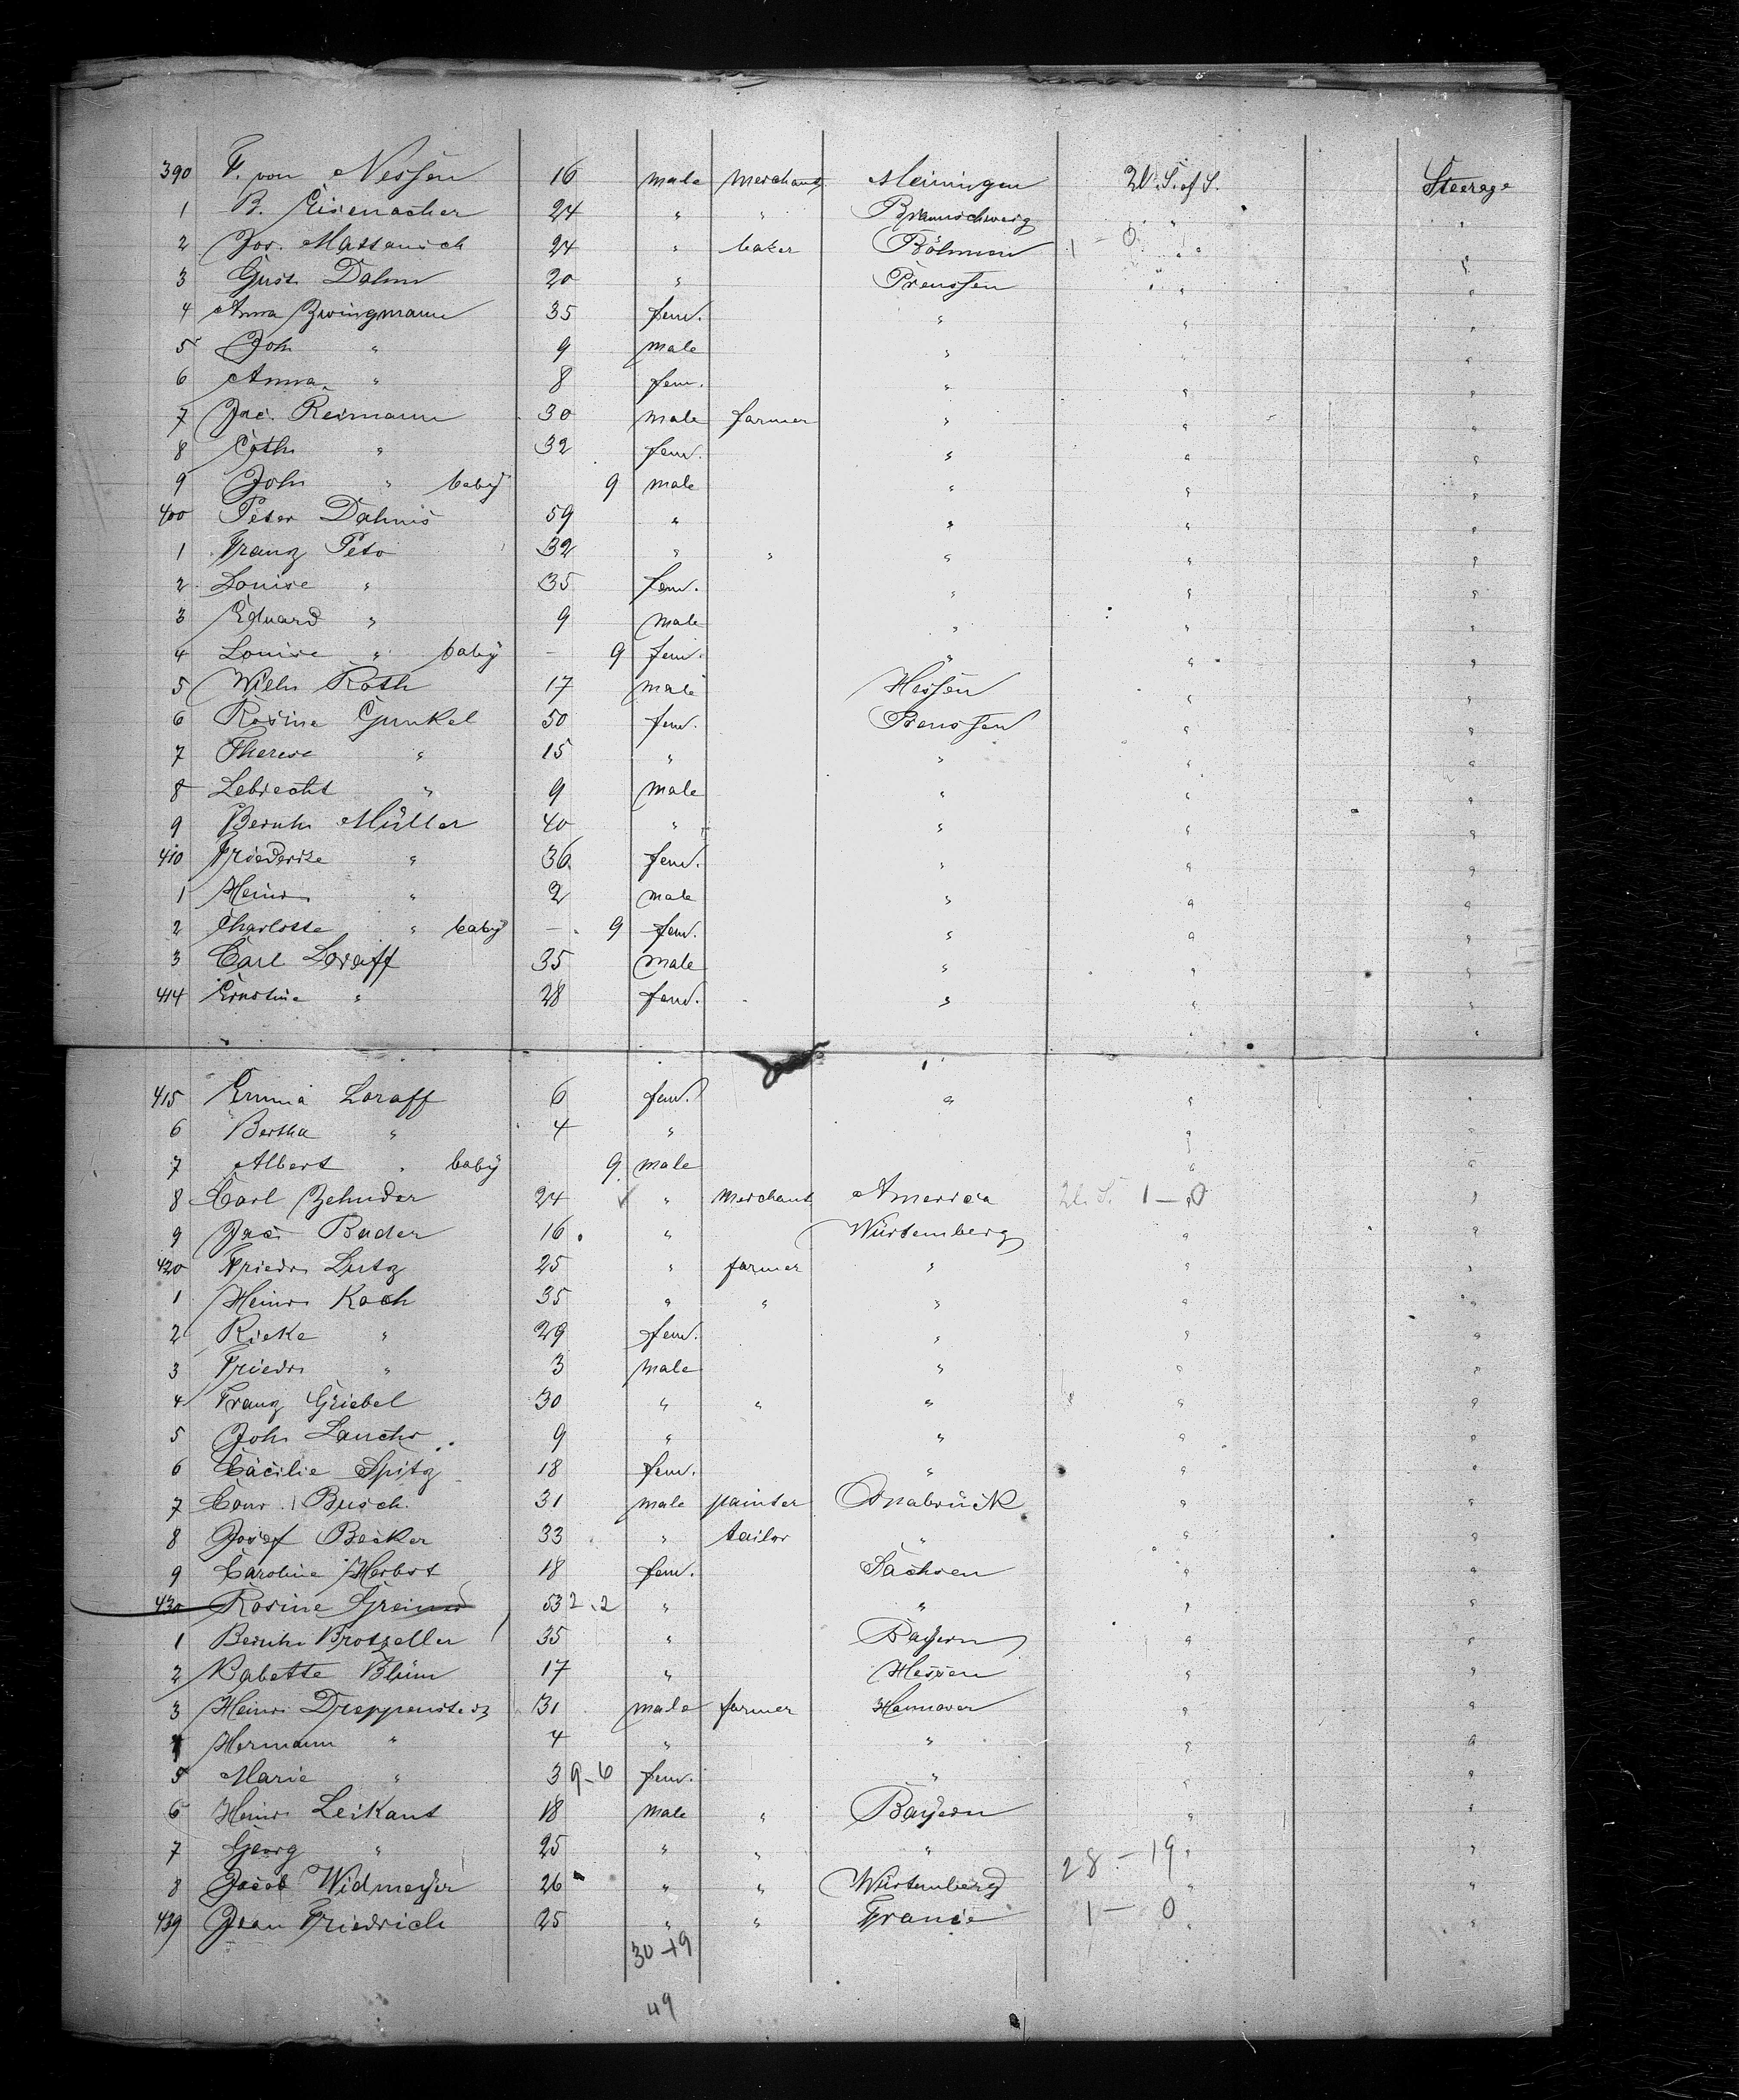 390 F. von Nessen 16 male merchant Meiningen U. S. of S. Steerage
1 B. Eisenacher 24 " " Braunschweig " "
2 Jos. Mattausch 24 " baker Böhmen 1 - 0 " "
3 Gust. Dahm 20 " Preussen " "
4 Anna Zwingmann 35 fem. " " "
5 Joh " 9 male " " "
6 Anna " 8 fem. " " "
7 Jac. Reimann 30 male farmer " " "
8 Cath " 32 fem. " " "
9 Joh " baby 9 male " " "
400 Peter Dahms 59 " " " "
1 Franz Peto 32 " " " " "
2 Louise " 35 fem. " " "
3 Eduard " 9 male " " "
4 Louise " baby - 9 fem. " " "
5 Wilh Roth 17 male Hessen " "
6 Rosine Gunkel 50 fem. Preussen " "
7 Therese " 15 " " " "
8 Lebrecht " 9 male " " "
9 Bernh Müller 40 " " " "
410 Friederike " 36 fem. " " "
1 Heinr " 2 male " " "
2 Charlotte " baby - 9 fem. " " "
3 Carl Loraff 35 male " " "
414 Ernstine " 28 fem. " " "
415 Emma Loraff 6 fem. " " "
6 Bertha " 4 " " "
7 Albert " baby 9 male " "
8 Carl Zehnder 24 " merchant America U. S. 1 - 0 "
9 Jac. Bader 16 " Würtemberg " "
420 Friedr Lutz 25 " farmer " " "
1 Heinr Koch 35 " " " " "
2 Rieke " 29 fem. " " "
3 Friedr " 3 male " " "
4 Franz Griebel 30 " " " " "
5 Joh Lauchs 9 " " " "
6 Cäcilie Spitz 18 fem. " " "
7 Conr. Busch. 31 male painter Osnabrück " "
8 Josef Becker 33 " tailor " " "
9 Caroline Herbst 18 fem. Sachsen " "
430 Rosine Greiner 53 2.2 " " " "
1 Bernh. Brotzeller 35 " Bayern " "
2 Babette Blüm 17 " Hessen " "
3 Heinr 31 male farmer Hannover " "
4 Hermann " 4 " " " "
5 Marie " 3 9-6 fem. " " "
6 Heinr Leikaut 18 male " Bayern " "
7 Georg " 25 " " " 28 - 19 " "
8 Jacob Widmeyer 26 " " Würtemberg " "
439 Jean Friedrich 25 " " France 1 - 0 " "
30-19
49